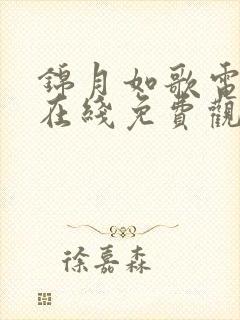 錦月如歌電
在綫免費觀
徐嘉森